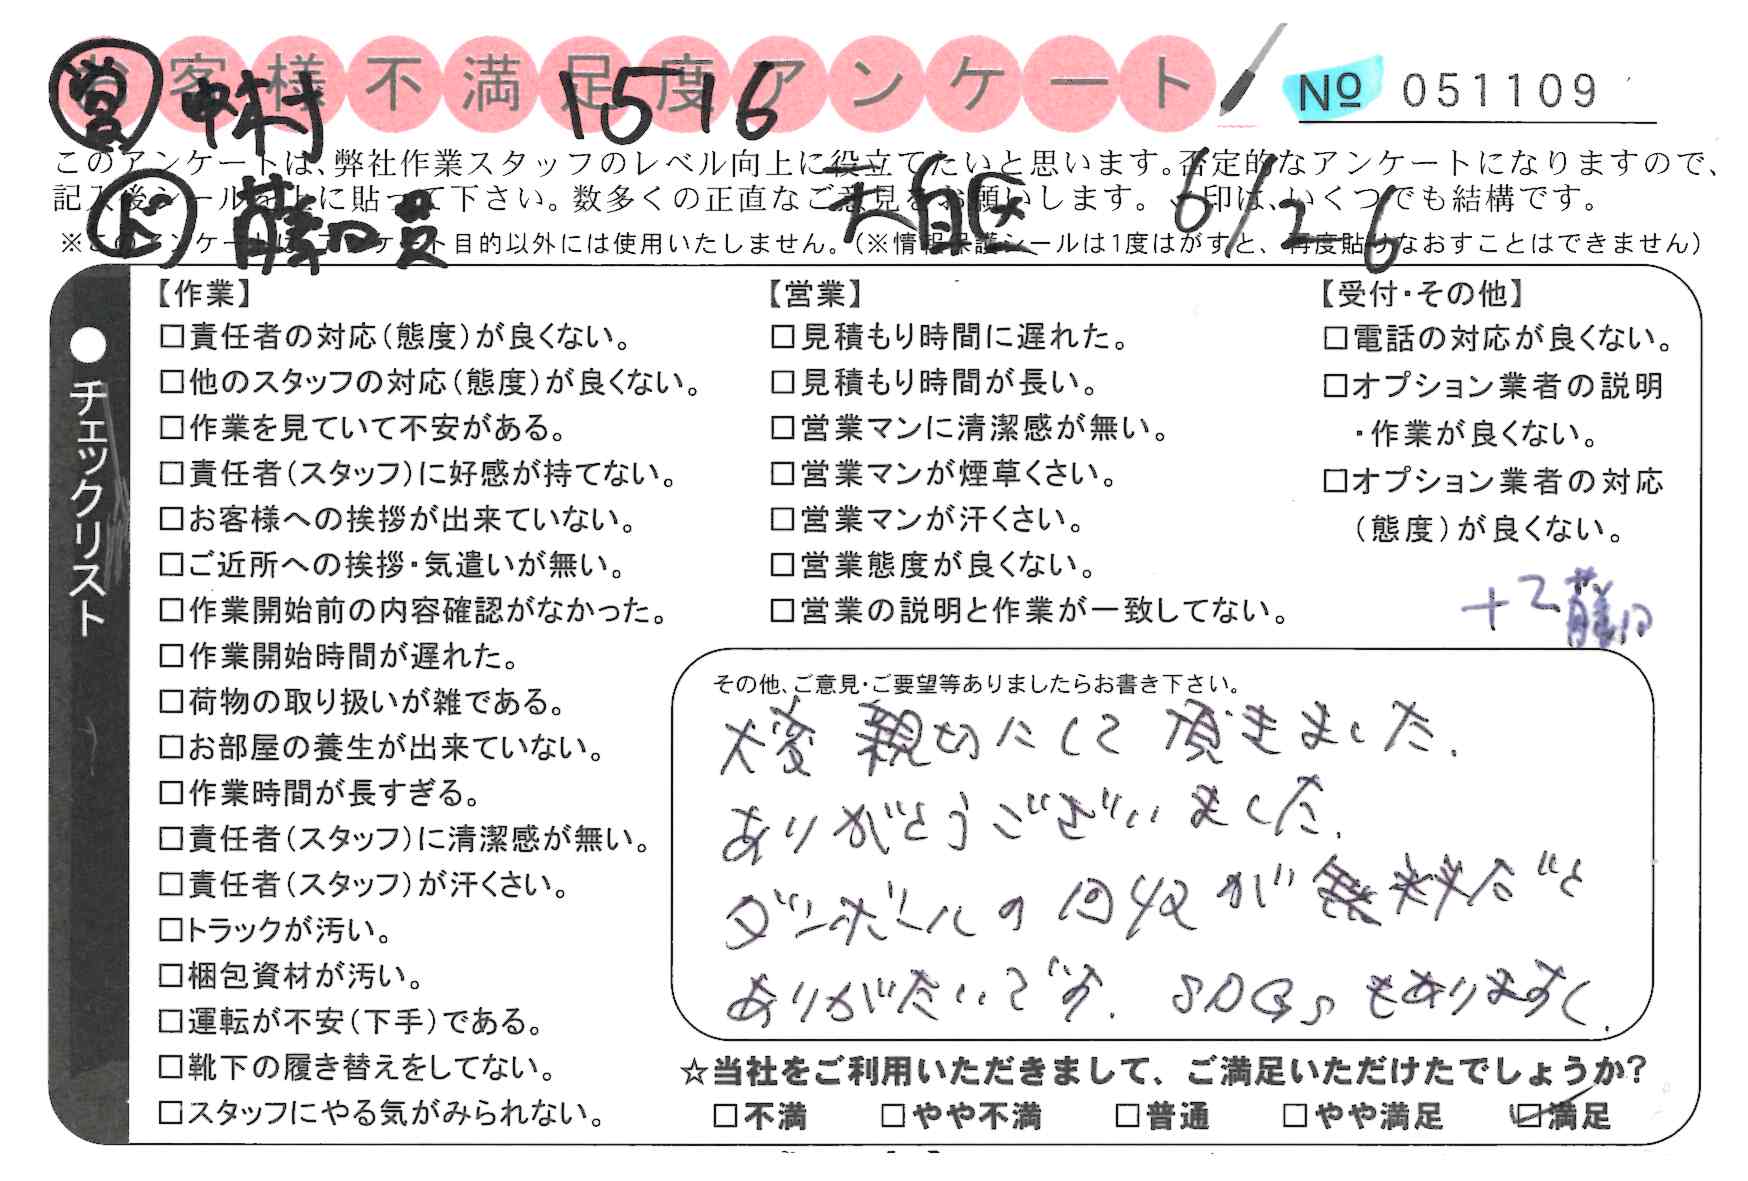 お客様不満足度アンケート
№ 051109
営 中村 1516
このアンケートは、弊社作業スタッフのレベル向上に役立てたいと思います。否定的なアンケートになりますので、
記入後シールを上に貼って下さい。数多くの正直なご意見をお願いします。✓印は、いくつでも結構です。
ド 藤田 6/26
※このアンケートは、アンケート目的以外には使用いたしません。(※情報保護シールは1度はがすと、再度貼りなおすことはできません)
●チェックリスト
【作業】
□責任者の対応(態度)が良くない。
□他のスタッフの対応(態度)が良くない。
□作業を見ていて不安がある。
□責任者(スタッフ)に好感が持てない。
□お客様への挨拶が出来ていない。
□ご近所への挨拶・気遣いが無い。
□作業開始前の内容確認がなかった。
□作業開始時間が遅れた。
□荷物の取り扱いが雑である。
□お部屋の養生が出来ていない。
□作業時間が長すぎる。
□責任者(スタッフ)に清潔感が無い。
□責任者(スタッフ)が汗くさい。
□トラックが汚い。
□梱包資材が汚い。
□運転が不安(下手)である。
□靴下の履き替えをしてない。
□スタッフにやる気がみられない。
【営業】
□見積もり時間に遅れた。
□見積もり時間が長い。
□営業マンに清潔感が無い。
□営業マンが煙草くさい。
□営業マンが汗くさい。
□営業態度が良くない。
□営業の説明と作業が一致してない。
【受付・その他】
□電話の対応が良くない。
□オプション業者の説明
・作業が良くない。
□オプション業者の対応
(態度)が良くない。
+2 藤田
その他、ご意見・ご要望等ありましたらお書き下さい。
大変 親切にして 頂きました.
ありがとうございました.
ダンボールの回収が無料だと
ありがたいです. SDGsもありますく.
☆当社をご利用いただきまして、ご満足いただけたでしょうか?
□不満 □やや不満 □普通 □やや満足 ☑満足